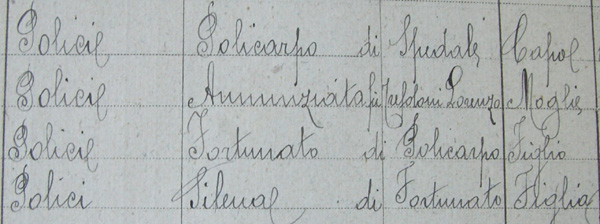 Policie Policarpo di Spedale Capo
Policie Annunziata fu Lorenzo Moglie
Policie Fortunato di Policarpo Figlio
Polici Filena di Fortunato Figlia